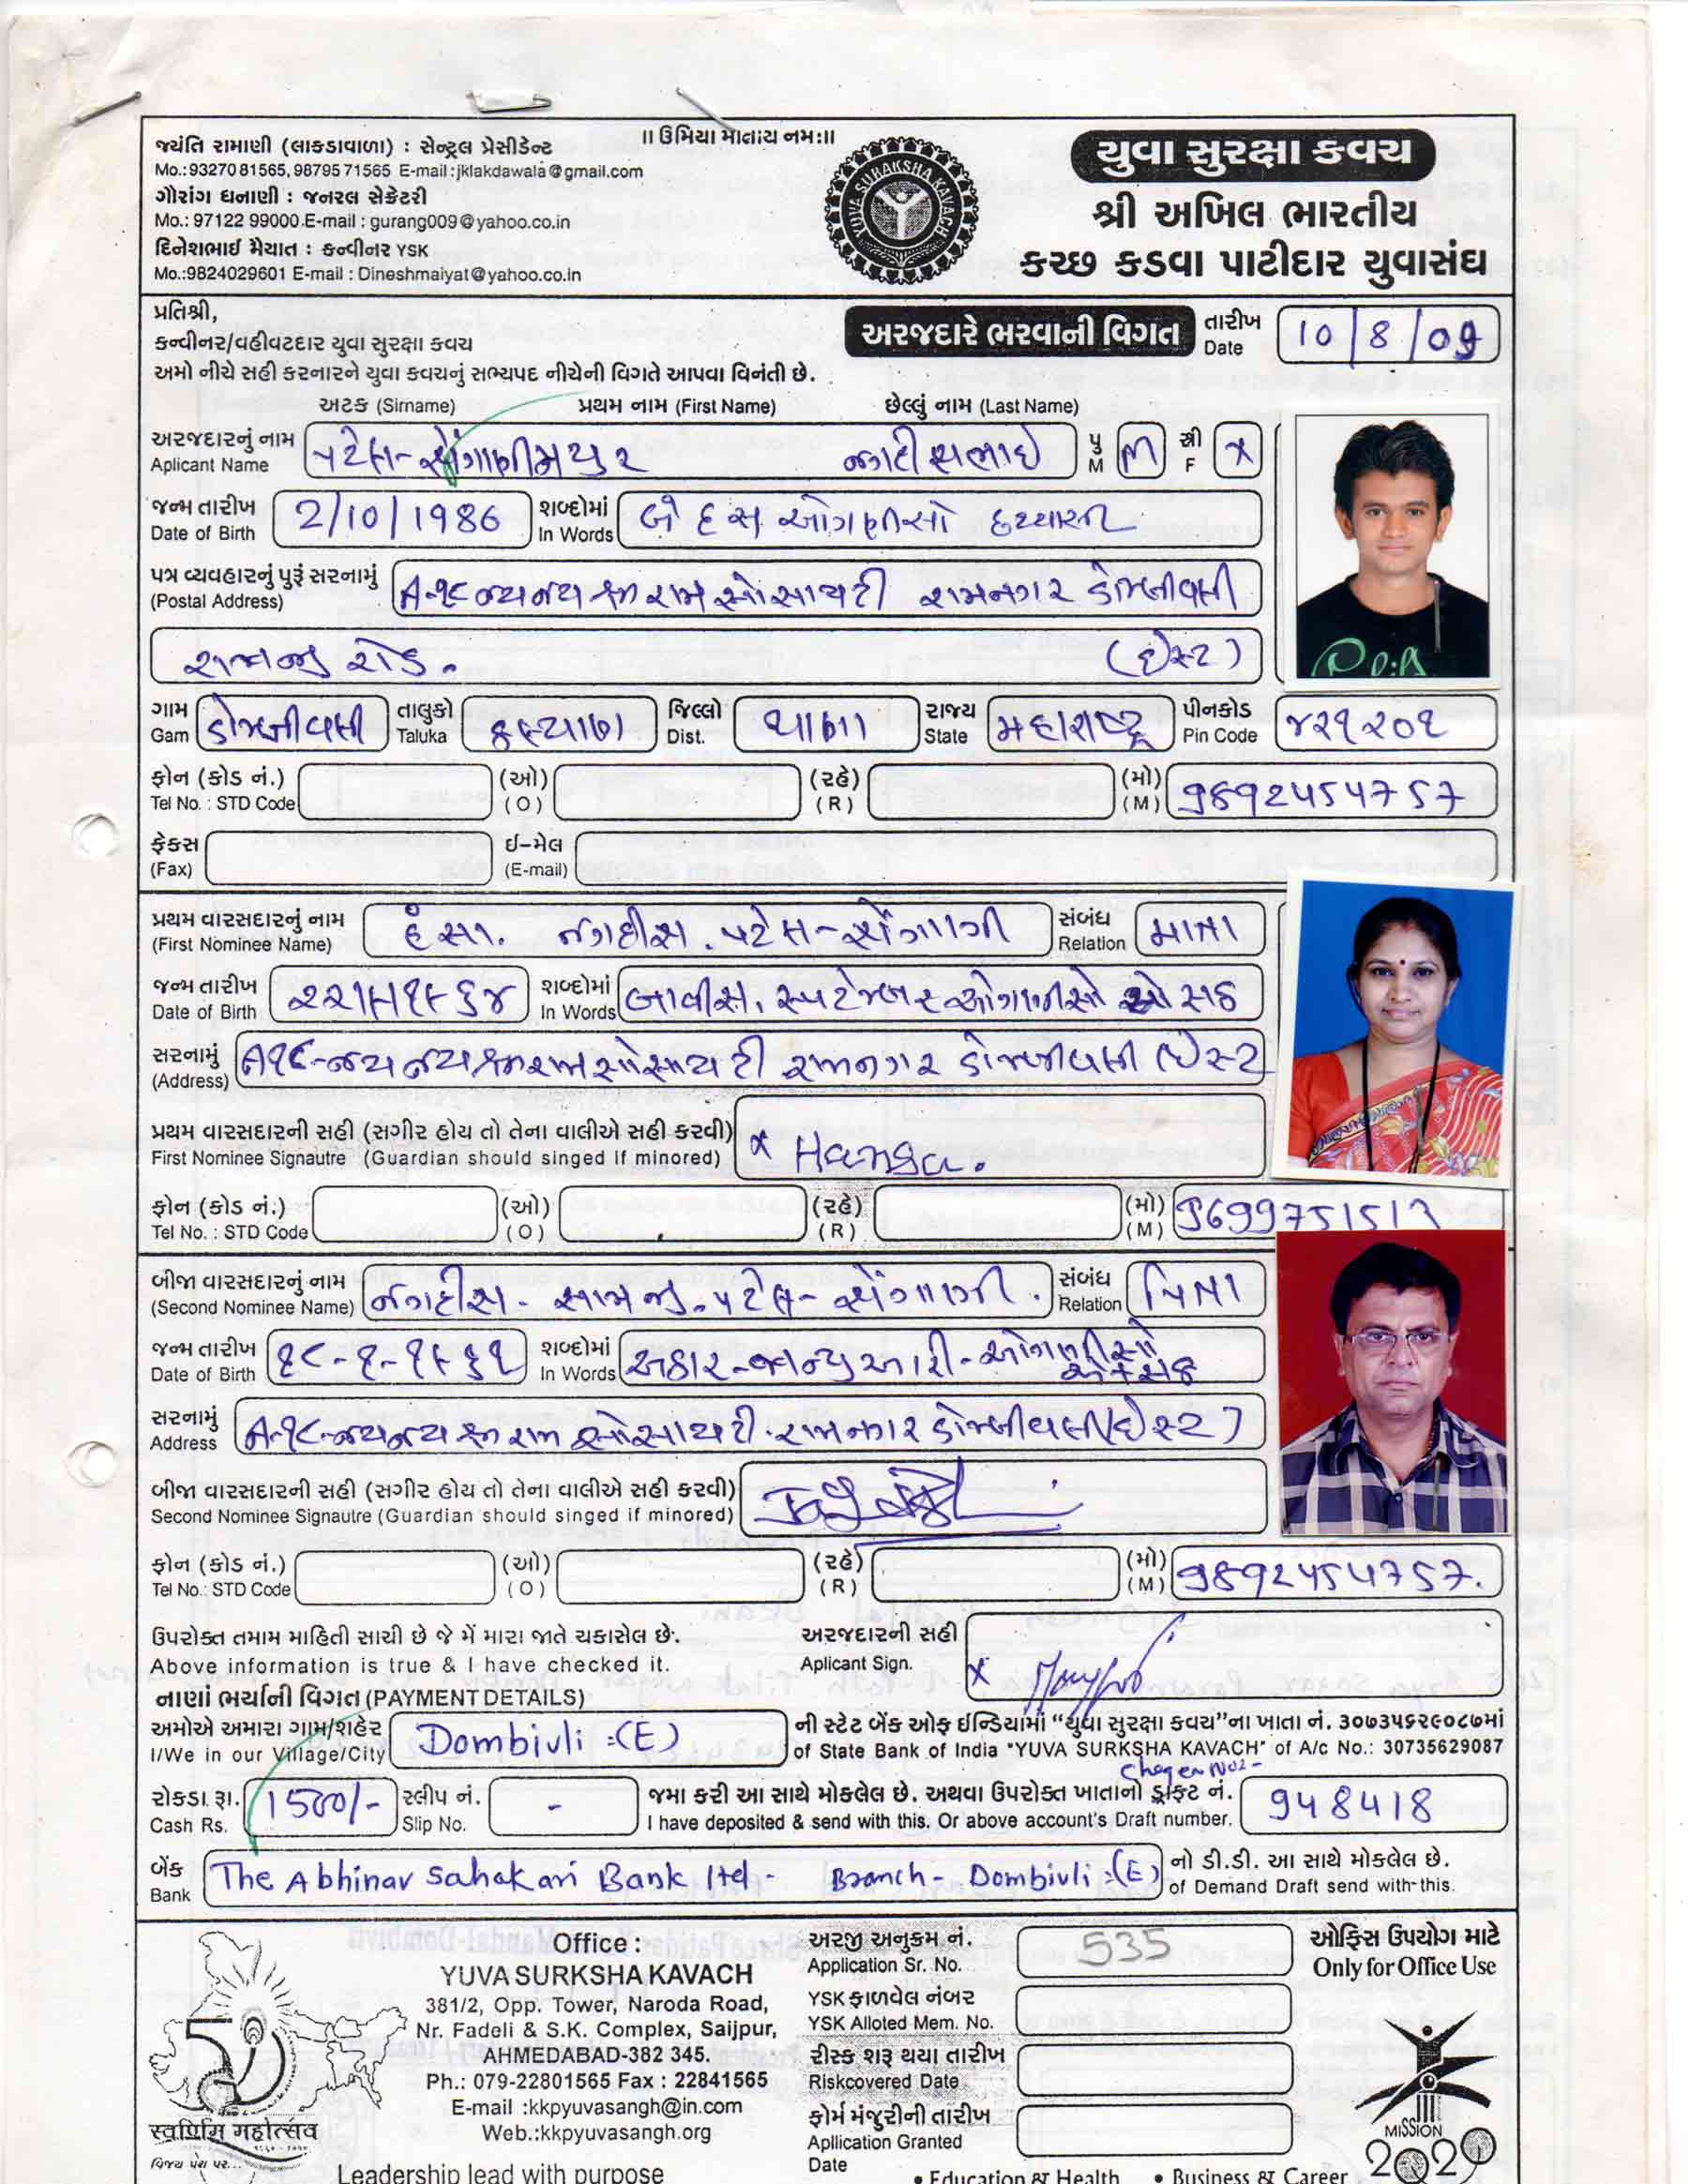 ॥ ઉમિયા માતાય નમઃ॥
જયંતિ રામાણી (લાકડાવાળા) : સેન્ટ્રલ પ્રેસીડેન્ટ
Mo.:9327081565, 9879571565 E-mail :jklakdawala@gmail.com
ગૌરાંગ ધનાણી : જનરલ સેક્રેટરી
Mo.: 97122 99000.E-mail : gurang009@yahoo.co.in
દિનેશભાઈ મૈયાત : કન્વીનર YSK
Mo.:9824029601 E-mail : Dineshmaiyat@yahoo.co.in
YUVA SURAKSHA KAVACH
યુવા સુરક્ષા કવચ
શ્રી અખિલ ભારતીય
કચ્છ કડવા પાટીદાર યુવાસંઘ
પ્રતિશ્રી,
કન્વીનર/વહીવટદાર યુવા સુરક્ષા કવચ
અમો નીચે સહી કરનારને યુવા કવચનું સભ્યપદ નીચેની વિગતે આપવા વિનંતી છે.
અરજદારે ભરવાની વિગત તારીખ Date 10/8/09
અટક (Sirname) પ્રથમ નામ (First Name) છેલ્લું નામ (Last Name)
અરજદારનું નામ Aplicant Name પટેલ-સોંગાણી મયુર જગદીસભાઈ પુ M M સ્ત્રી F X
જન્મ તારીખ Date of Birth 2/10/1986 શબ્દોમાં In Words બે દસ ઓગણીસો
પત્ર વ્યવહારનું પુરૂં સરનામું (Postal Address) A-૧૮ જય જય શ્રી રામ સોસાયટી રામનગર ડોમ્બીવલી
રોડ. (ઈસ્ટ)
ગામ Gam ડોમ્બીવલી તાલુકો Taluka કલ્યાણ જિલ્લો Dist. થાણા રાજ્ય State મહારાષ્ટ્ર પીનકોડ Pin Code ૪૨૧૨૦૧
ફોન (કોડ નં.) Tel No. : STD Code (ઓ) (O) (રહે) (R) (મો) (M) 9892454757
ફેકસ (Fax) ઈ-મેલ (E-mail)
પ્રથમ વારસદારનું નામ (First Nominee Name) હંસા. જગદીસ. પટેલ-સોંગાણી સંબંધ Relation માતા
જન્મ તારીખ Date of Birth શબ્દોમાં In Words બાવીસ. સપટેમ્બર ઓગણીસો
સરનામું (Address) A૧૮-જય જય શ્રી રામ સોસાયટી રામનગર ડોમ્બીવલી (ઈસ્ટ
પ્રથમ વારસદારની સહી (સગીર હોય તો તેના વાલીએ સહી કરવી)
First Nominee Signautre (Guardian should singed If minored) x Hansa.
ફોન (કોડ નં.) Tel No. : STD Code (ઓ) (O) (રહે) (R) (મો) (M)
બીજા વારસદારનું નામ (Second Nominee Name) જગદીસ- સામજી- પટેલ- સોંગાણી. સંબંધ Relation પિતા
જન્મ તારીખ Date of Birth ૧૮-૧-૧૯૬૧ શબ્દોમાં In Words અઢાર-જાન્યુઆરી-ઓગણીસો એકસઠ
સરનામું Address A-૧૮-જય જય શ્રી રામ સોસાયટી. રામનગર ડોમ્બીવલી(ઈસ્ટ)
બીજા વારસદારની સહી (સગીર હોય તો તેના વાલીએ સહી કરવી)
Second Nominee Signautre (Guardian should singed if minored)
ફોન (કોડ નં.) Tel No.: STD Code (ઓ) (O) (રહે) (R) (મો) (M) 9892454757.
ઉપરોક્ત તમામ માહિતી સાચી છે જે મેં મારા જાતે ચકાસેલ છે. અરજદારની સહી
Above information is true & I have checked it. Aplicant Sign. x
નાણાં ભર્યાની વિગત (PAYMENT DETAILS)
અમોએ અમારા ગામ/શહેર Dombivli :(E) ની સ્ટેટ બેંક ઓફ ઈન્ડિયામાં “યુવા સુરક્ષા કવચ”ના ખાતા નં. ૩૦૭૩૫૬૨૯૦૮૭માં
I/We in our Village/City of State Bank of India "YUVA SURKSHA KAVACH" of A/c No.: 30735629087
રોકડા રૂા. Cash Rs. 1500/- સ્લીપ નં. Slip No. - જમા કરી આ સાથે મોકલેલ છે. અથવા ઉપરોક્ત ખાતાનો ડ્રાફ્ટ નં. 948418
I have deposited & send with this. Or above account's Draft number.
બેંક Bank The Abhinav Sahakari Bank ltd - Branch - Dombivli :(E) નો ડી.ડી. આ સાથે મોકલેલ છે.
of Demand Draft send with-this.
Office :
YUVA SURKSHA KAVACH
381/2, Opp. Tower, Naroda Road,
Nr. Fadeli & S.K. Complex, Saijpur,
AHMEDABAD-382 345.
Ph.: 079-22801565 Fax : 22841565
E-mail :kkpyuvasangh@in.com
Web.:kkpyuvasangh.org
Leadership lead with purpose
અરજી અનુક્રમ નં. Application Sr. No. 535
YSK ફાળવેલ નંબર
YSK Alloted Mem. No.
રીસ્ક શરૂ થયા તારીખ
Riskcovered Date
ફોર્મ મંજુરીની તારીખ
Apllication Granted
Date
ઓફિસ ઉપયોગ માટે
Only for Office Use
स्वर्णिम महोत्सव
MISSION
2020
• Education & Health • Business & Career